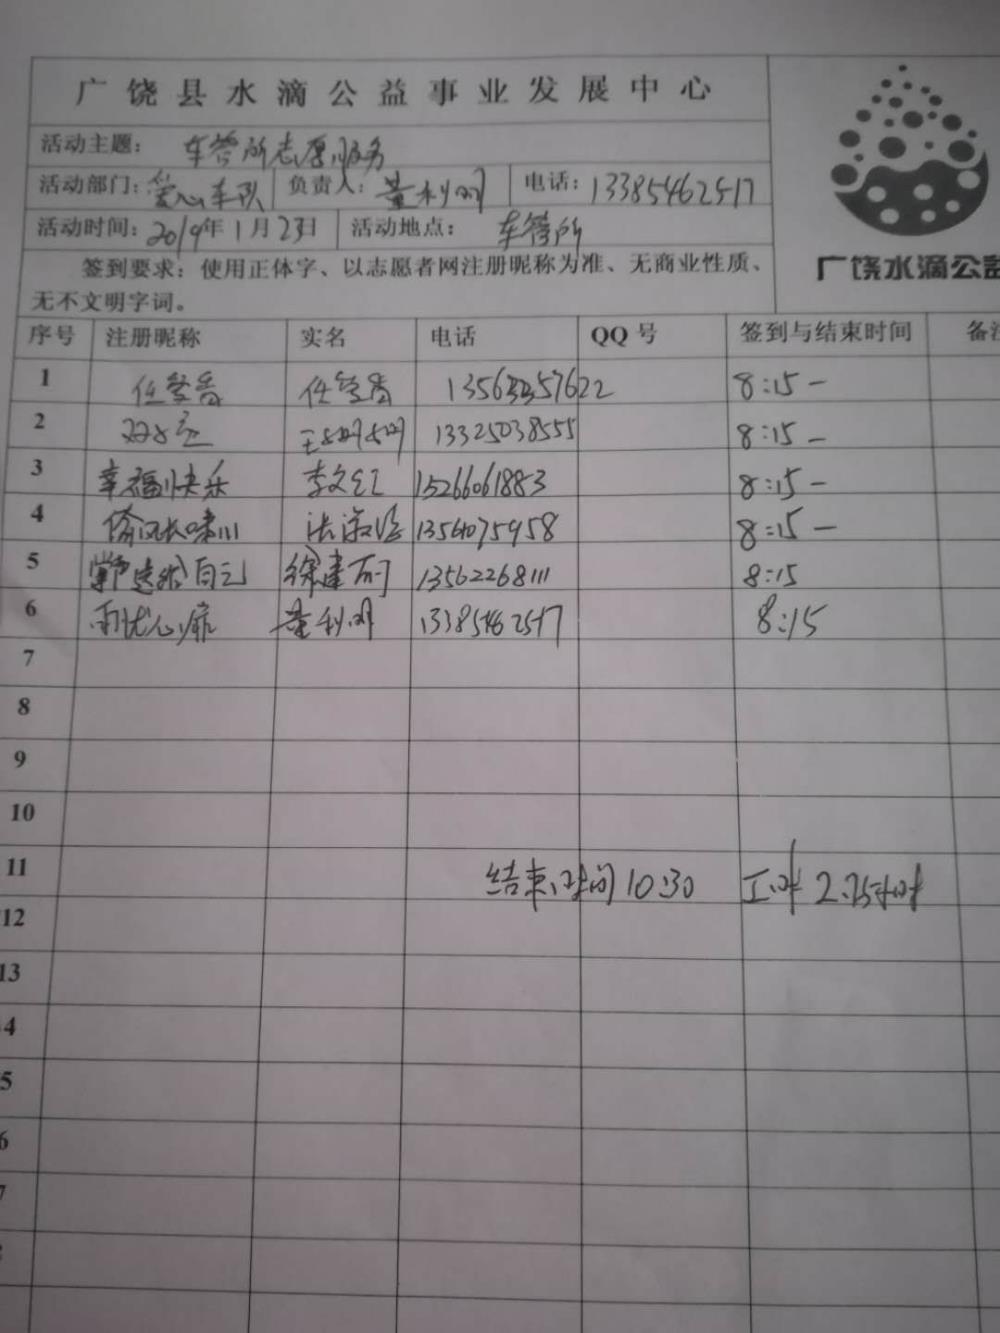 广饶县水滴公益事业发展中心
活动主题： 车管所志愿服务
活动部门：爱心车队 负责人： 董利明 电话：13385462517
活动时间：2019年1月23日 活动地点： 车管所
签到要求：使用正体字、以志愿者网注册昵称为准、无商业性质、
无不文明字词。
广饶水滴公益
序号 注册昵称 实名 电话 QQ 号 签到与结束时间 备注
1 8:15 —
2 13325038555 8:15 —
3 幸福快乐 李文 15266061883 8:15 —
4 1354075958 8:15 —
5 自己 徐建 13562268111 8:15
6 董利明 13385462517 8:15
7
8
9
10
11 结束时间10:30 工时 2.75小时
12
13
4
5
6
7